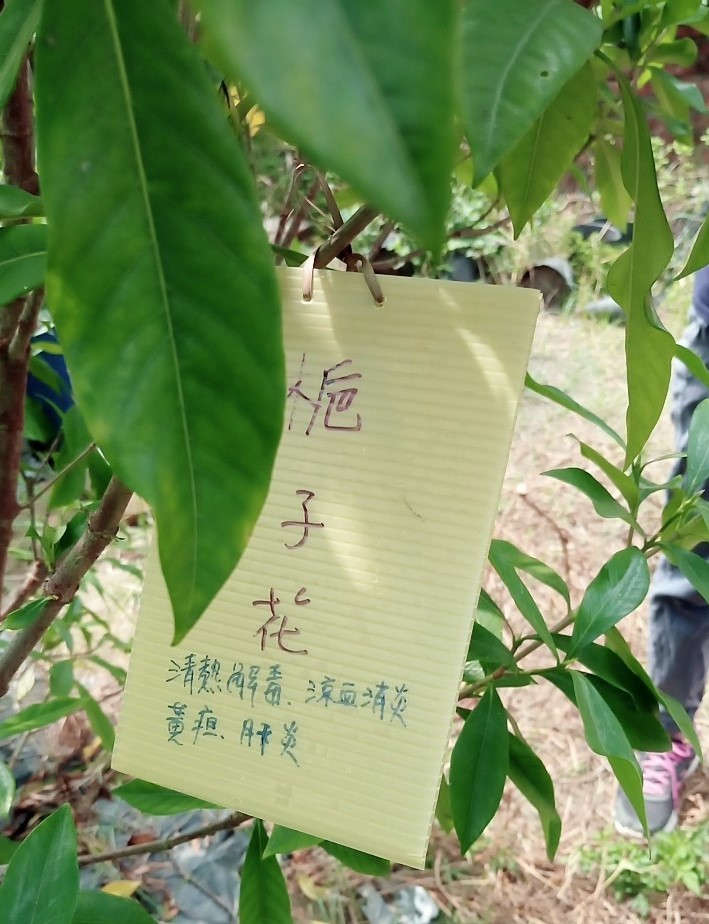 梔
子
花
清熱解毒、涼血消炎
黃疸、肝炎